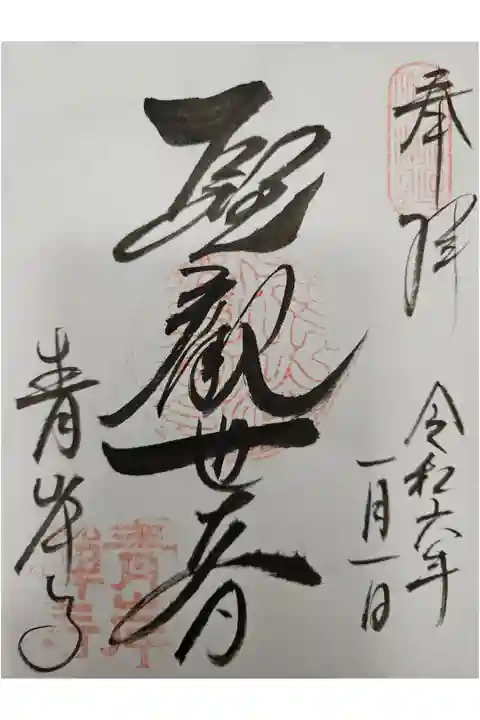 奉拝
令和六年
一月一日
聖観世音
青岸寺
青岸
禅寺